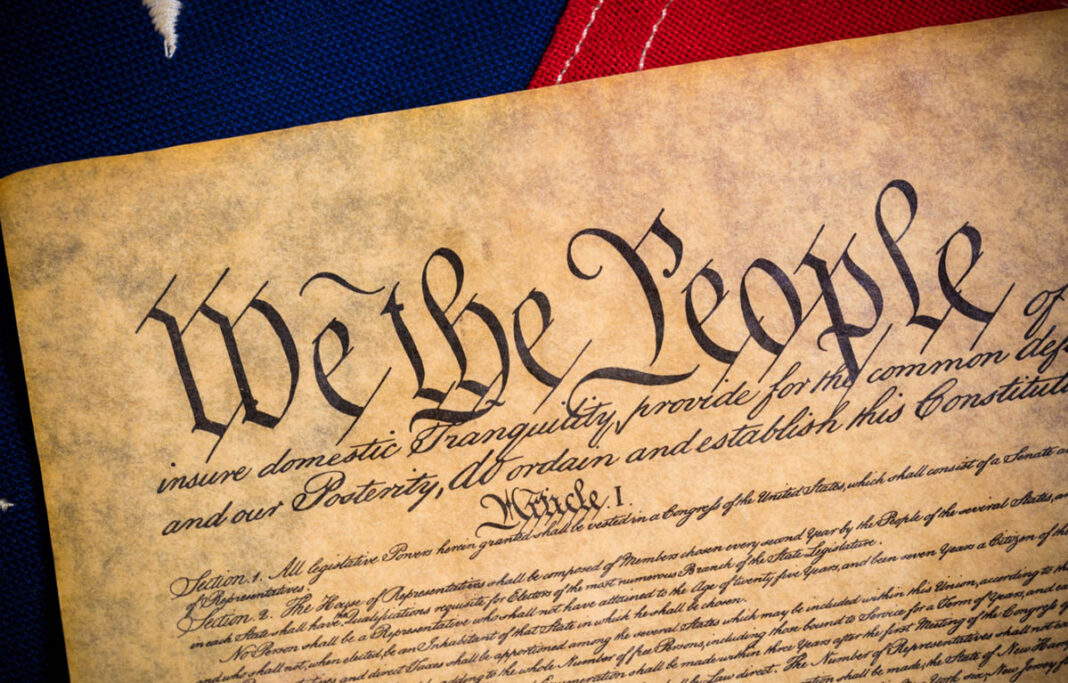 We the People of
insure domestic Tranquility, provide for the common def
and our Posterity, do ordain and establish this Constitut
Article. I.
Section. 1. All legislative Powers herein granted shall be vested in a Congress of the United States, which shall consist of a Senate a
of Representatives.
Section. 2. The House of Representatives shall be composed of Members chosen every second Year by the People of the several States, an
in each State shall have the Qualifications requisite for Electors of the most numerous Branch of the State Legislature.
No Person shall be a Representative who shall not have attained to the Age of twenty five Years, and been seven Years a Citizen of the
and who shall not, when elected, be an Inhabitant of that State in which he shall be chosen.
and direct Taxes shall be apportioned among the several States which may be included within this Union, according to th
adding to the whole Number of free Persons, including those bound to Service for a Term of Years, and ex
shall be made within three Years after the first Meeting of the Congress of
by Law direct. The Number of Representatives shall not
shall be made, the State of New Ham
York six, New Jersey fo